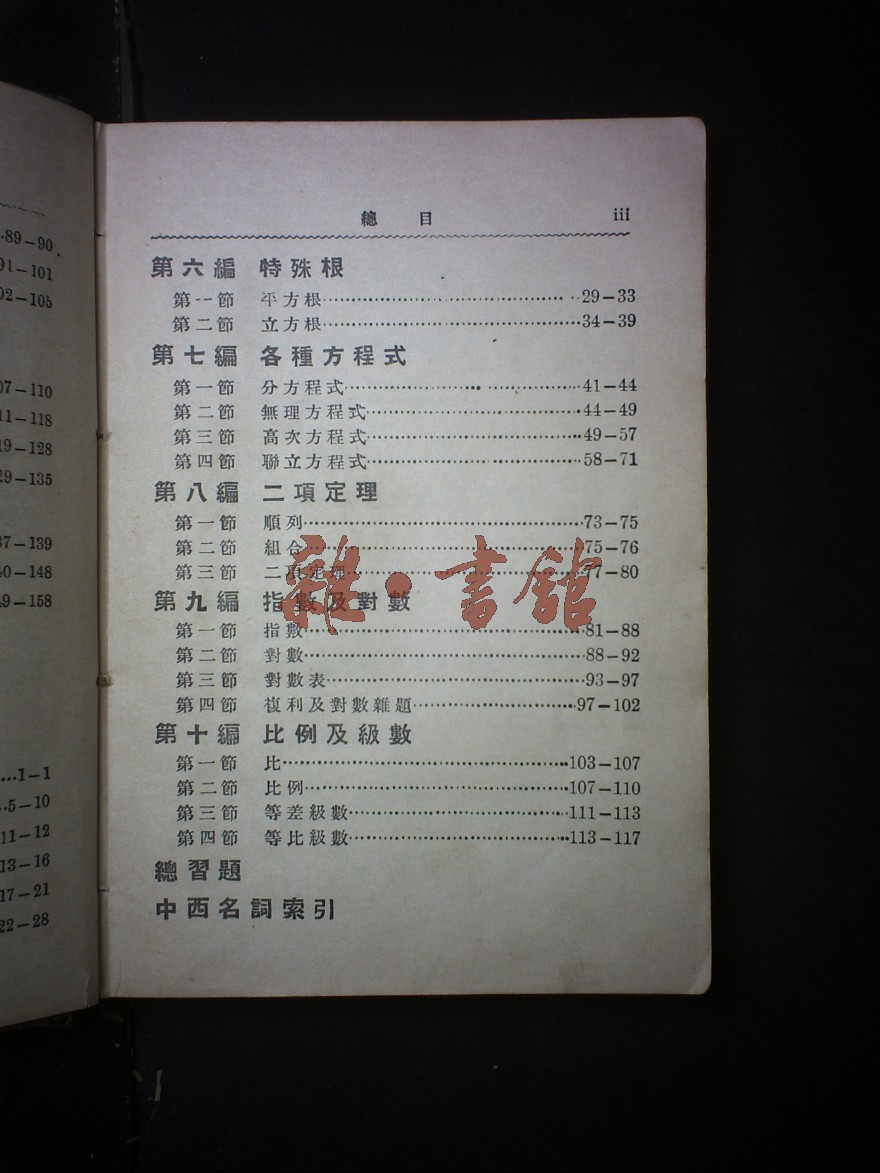 89–90
91–101
92–105
07–110
11–118
19–128
29–135
37–139
40–148
49–158
…1–1
5–10
11–12
13–16
17–21
22–28
總目 iii
第六編 特殊根
第一節 平方根 29–33
第二節 立方根 34–39
第七編 各種方程式
第一節 分方程式 41–44
第二節 無理方程式 44–49
第三節 高次方程式 49–57
第四節 聯立方程式 58–71
第八編 二項定理
第一節 順列 73–75
第二節 組合 75–76
第三節 二項定理 77–80
第九編 指數及對數
第一節 指數 81–88
第二節 對數 88–92
第三節 對數表 93–97
第四節 複利及對數雜題 97–102
第十編 比例及級數
第一節 比 103–107
第二節 比例 107–110
第三節 等差級數 111–113
第四節 等比級數 113–117
總習題
中西名詞索引
雜·書館